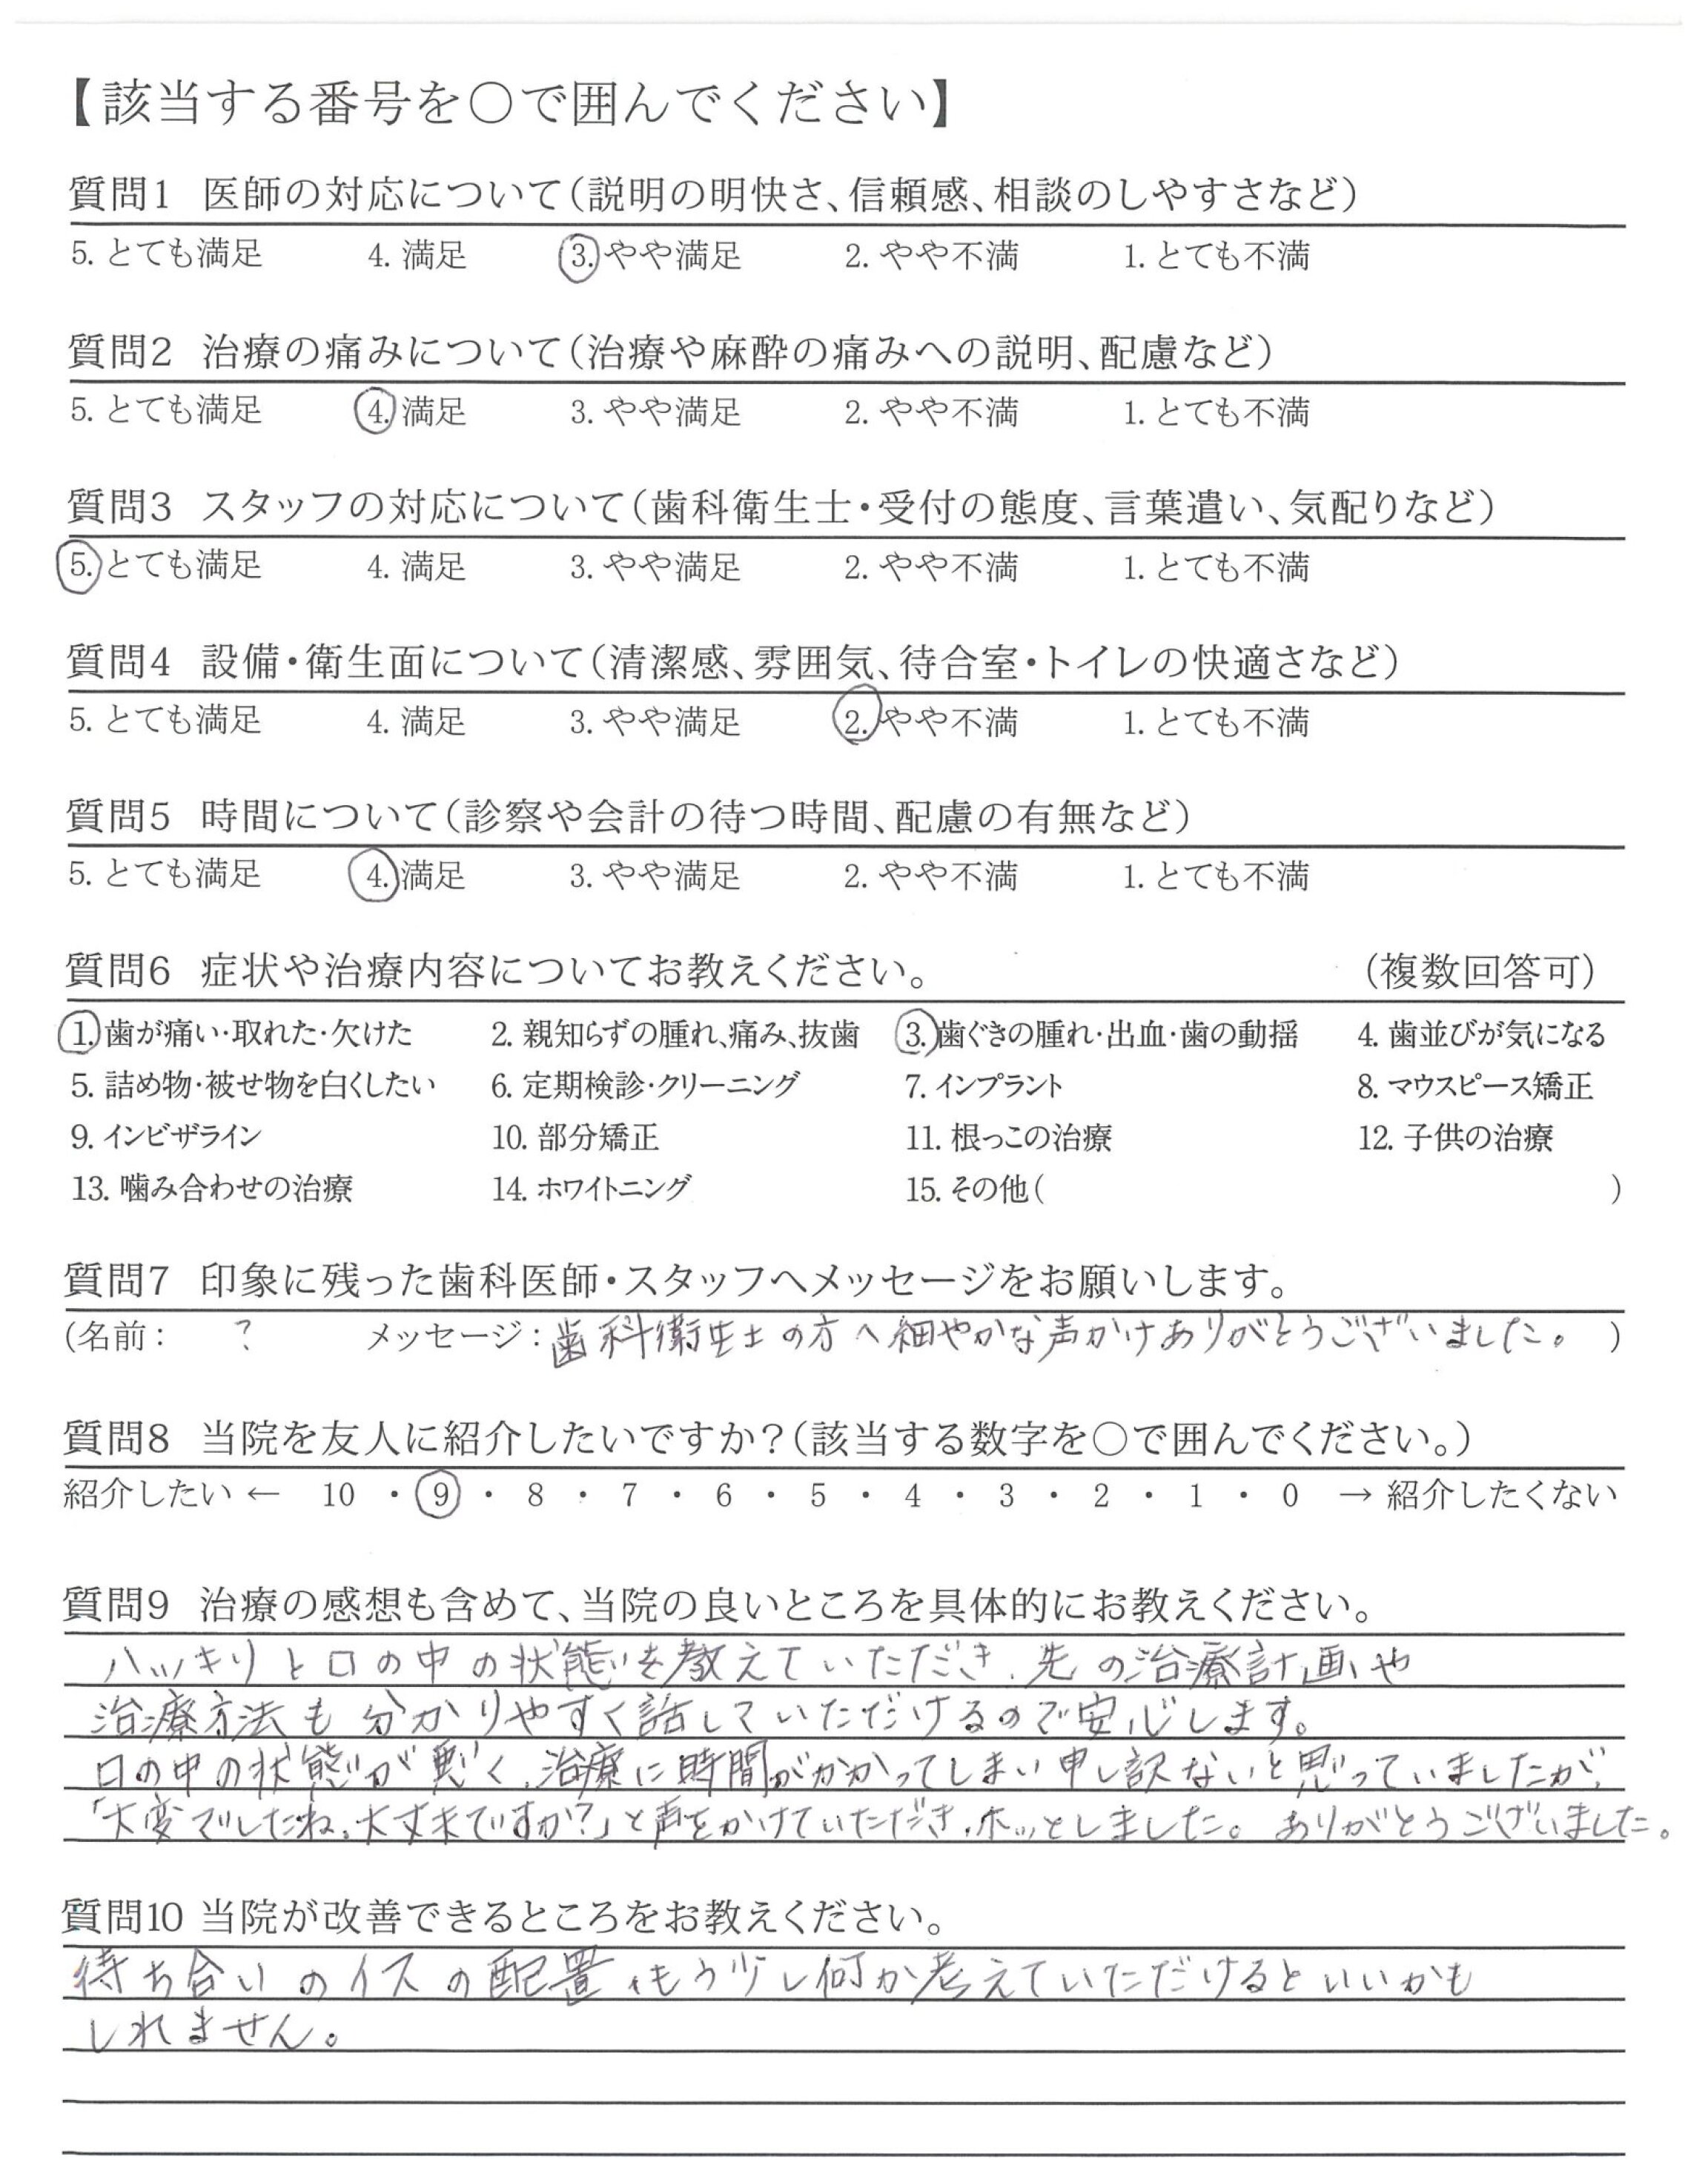 【該当する番号を○で囲んでください】
質問1 医師の対応について(説明の明快さ、信頼感、相談のしやすさなど)
5. とても満足 4. 満足 3. やや満足 2. やや不満 1. とても不満
質問2 治療の痛みについて(治療や麻酔の痛みへの説明、配慮など)
5. とても満足 4. 満足 3. やや満足 2. やや不満 1. とても不満
質問3 スタッフの対応について(歯科衛生士・受付の態度、言葉遣い、気配りなど)
5. とても満足 4. 満足 3. やや満足 2. やや不満 1. とても不満
質問4 設備・衛生面について(清潔感、雰囲気、待合室・トイレの快適さなど)
5. とても満足 4. 満足 3. やや満足 2. やや不満 1. とても不満
質問5 時間について(診察や会計の待つ時間、配慮の有無など)
5. とても満足 4. 満足 3. やや満足 2. やや不満 1. とても不満
質問6 症状や治療内容についてお教えください。 (複数回答可)
1. 歯が痛い・取れた・欠けた 2. 親知らずの腫れ、痛み、抜歯 3. 歯ぐきの腫れ・出血・歯の動揺 4. 歯並びが気になる
5. 詰め物・被せ物を白くしたい 6. 定期検診・クリーニング 7. インプラント 8. マウスピース矯正
9. インビザライン 10. 部分矯正 11. 根っこの治療 12. 子供の治療
13. 噛み合わせの治療 14. ホワイトニング 15. その他( )
質問7 印象に残った歯科医師・スタッフへメッセージをお願いします。
(名前: ? メッセージ: 歯科衛生士の方へ細やかな声かけありがとうございました。 )
質問8 当院を友人に紹介したいですか?(該当する数字を○で囲んでください。)
紹介したい ← 10 ・ 9 ・ 8 ・ 7 ・ 6 ・ 5 ・ 4 ・ 3 ・ 2 ・ 1 ・ 0 → 紹介したくない
質問9 治療の感想も含めて、当院の良いところを具体的にお教えください。
ハッキリと口の中の状態を教えていただき、先の治療計画や
治療方法も分かりやすく話していただけるので安心します。
口の中の状態が悪く、治療に時間がかかってしまい申し訳ないと思っていましたが、
「大変でしたね。大丈夫ですか?」と声をかけていただき、ホッとしました。ありがとうございました。
質問10 当院が改善できるところをお教えください。
待ち合いのイスの配置、もう少し何か考えていただけるといいかも
しれません。